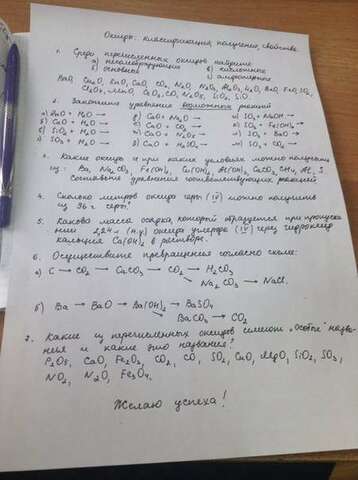 Оксиды: классификация, получение, свойства
1. Среди перечисленных оксидов найдите
а) несолеобразующие в) кислотные
б) основные г) амфотерные
2. Закончите уравнения возможных реакций
а) ZnO + H₂O →
б) CaO + H₂O →
в) SiO₂ + H₂O →
г) SO₃ + H₂O →
CaO + CO₂ →
CaO + N₂O₅ →
CuO + H₂SO₄ →
SO₃ + NaOH →
SO₃ + BaO →
SO₂ + CO₂ →
3. Какие оксиды и при каких условиях можно получить
из: Ba, Na₂CO₃, Fe(OH)₃, Cu(OH)₂, Al(OH)₃, CaCO₃, CH₄, Al, S
Составьте уравнения соответствующих реакций
4. Сколько литров оксида серы (IV) можно получить
из 36 г серы?
5. Какова масса осадка, который образуется при пропуска
нии 2,24 л (н.у) оксида углерода (IV) через гидроксид
кальция Ca(OH)₂ в растворе.
6. Осуществите превращения согласно схеме:
а) C → CO₂ → CaCO₃ → CO₂ → H₂CO₃
Na₂CO₃ → NaCl.
б) Ba → BaO → Ba(OH)₂ → BaSO₄
BaCO₃ → CO₂
7. Какие из перечисленных оксидов имеют "особое" назва-
ние и какие это названия?
P₂O₅, CaO, Fe₂O₃, CO₂, CO, SO₂, CuO, MgO, SiO₂, SO₃,
NO₂, N₂O, Fe₃O₄.
Желаю успеха!